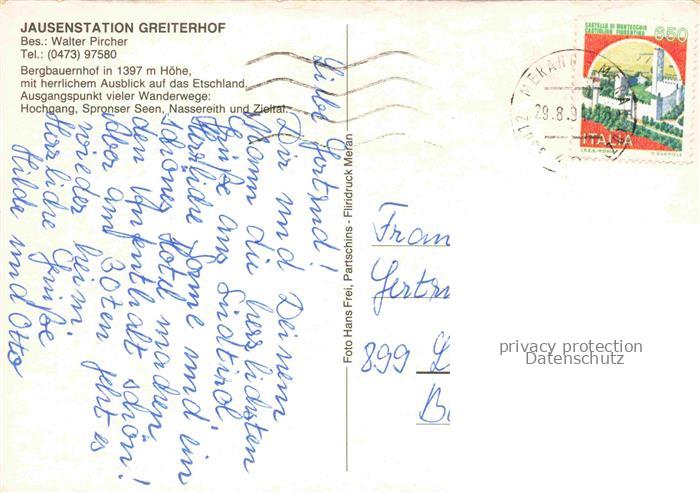 JAUSENSTATION GREITERHOF
Bes.: Walter Pircher
Tel.: (0473) 97580
Bergbauernhof in 1397 m Höhe,
mit herrlichem Ausblick auf das Etschland.
Ausgangspunkt vieler Wanderwege:
Hochgang, Spronser Seen, Nassereith und Zieltal.
Liebe Gertrud!
Dir und Deinem
Mann die herzlichsten
Grüße aus Südtirol.
Herrliche Sonne und ein
schönes Hotel machen
den Aufenthalt schön!
Aber am 30ten geht es
wieder heim.
Herzliche Grüße
Hilde und Otto
Foto Hans Frei, Partschins - Fliridruck Meran
CASTELLO DI MONTECCHIO
CASTIGLION FIORENTINO
650
ITALIA
I.P.Z.S.-ROMA
MERANO
29.8.9
Frau
Gertr
899 L
B
privacy protection
Datenschutz